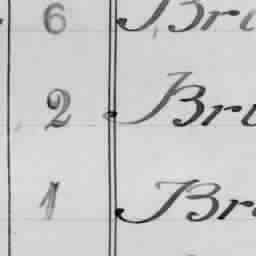 6 Bri
2 Bri
1 Bro